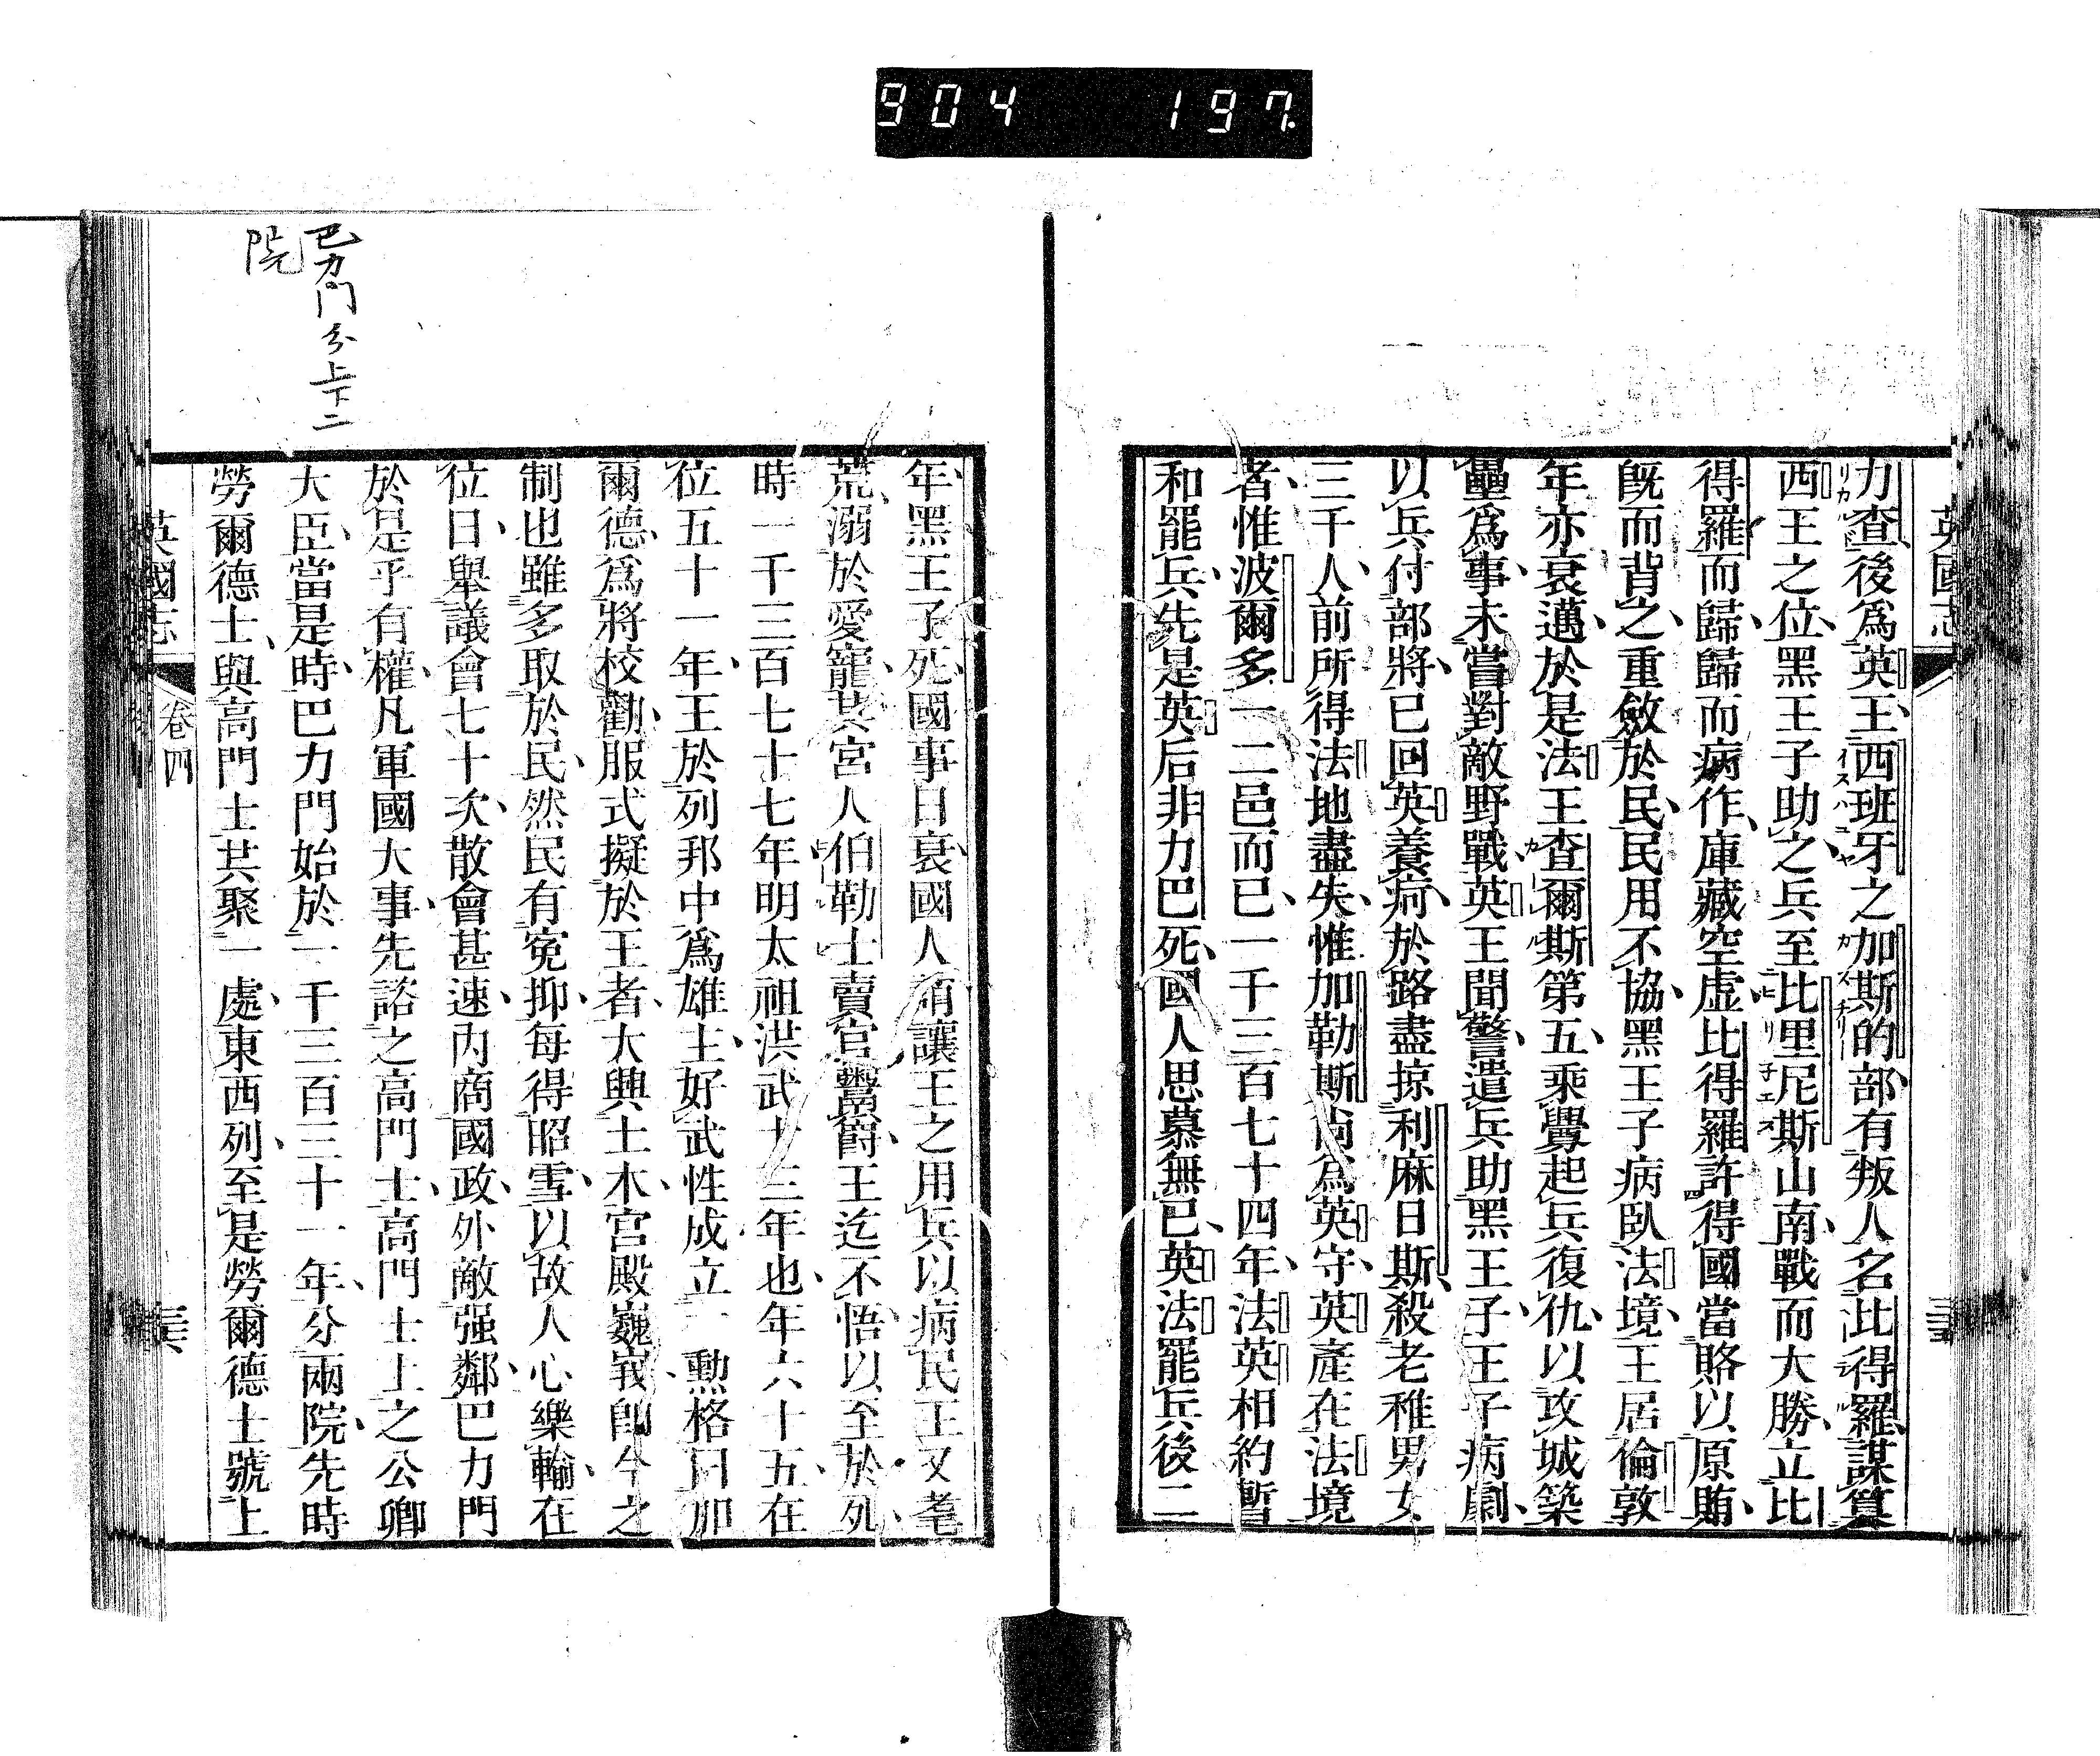 904 197
英國志
力查後爲英王西班牙之加斯的部有叛人名比得羅謀簒
西王之位黑王子助之兵至比里尼斯山南戰而大勝立比
得羅而歸歸而病作庫藏空虛比得羅許得國當賂以原賄
旣而背之重斂於民民用不協黑王子病臥法境王居倫敦
年亦衰邁於是法王查爾斯第五乘釁起兵復仇以攻城築
壘爲事未嘗對敵野戰英王聞警遣兵助黑王子王子病劇
以兵付部將已回英養疴於路盡掠利麻日斯殺老稚男女
三千人前所得法地盡失惟加勒斯尙爲英守英產在法境
者惟波爾多一二邑而已一千三百七十四年法英相約暫
和罷兵先是英后非力巴死國人思慕無已英法罷兵後二
巴力門分上下二
院
年黑王子死國事日衰國人誚讓王之用兵以病民王又耄
荒溺於愛寵其宮人伯勒士賣官鬻爵王迄不悟以至於死
時一千三百七十七年明太祖洪武十三年也年六十五在
位五十一年王於列邦中爲雄主好武性成立一勳格曰加
爾德爲將校勸服式擬於王者大興土木宮殿巍峩卽今之
制也雖多取於民然民有寃抑每得昭雪以故人心樂輸在
位日舉議會七十次散會甚速內商國政外敵强鄰巴力門
於是乎有權凡軍國大事先諮之高門士高門士上之公卿
大臣當是時巴力門始於一千三百三十一年分兩院先時
勞爾德士與高門士其聚一處東西列至是勞爾德士號上
英國志
卷四